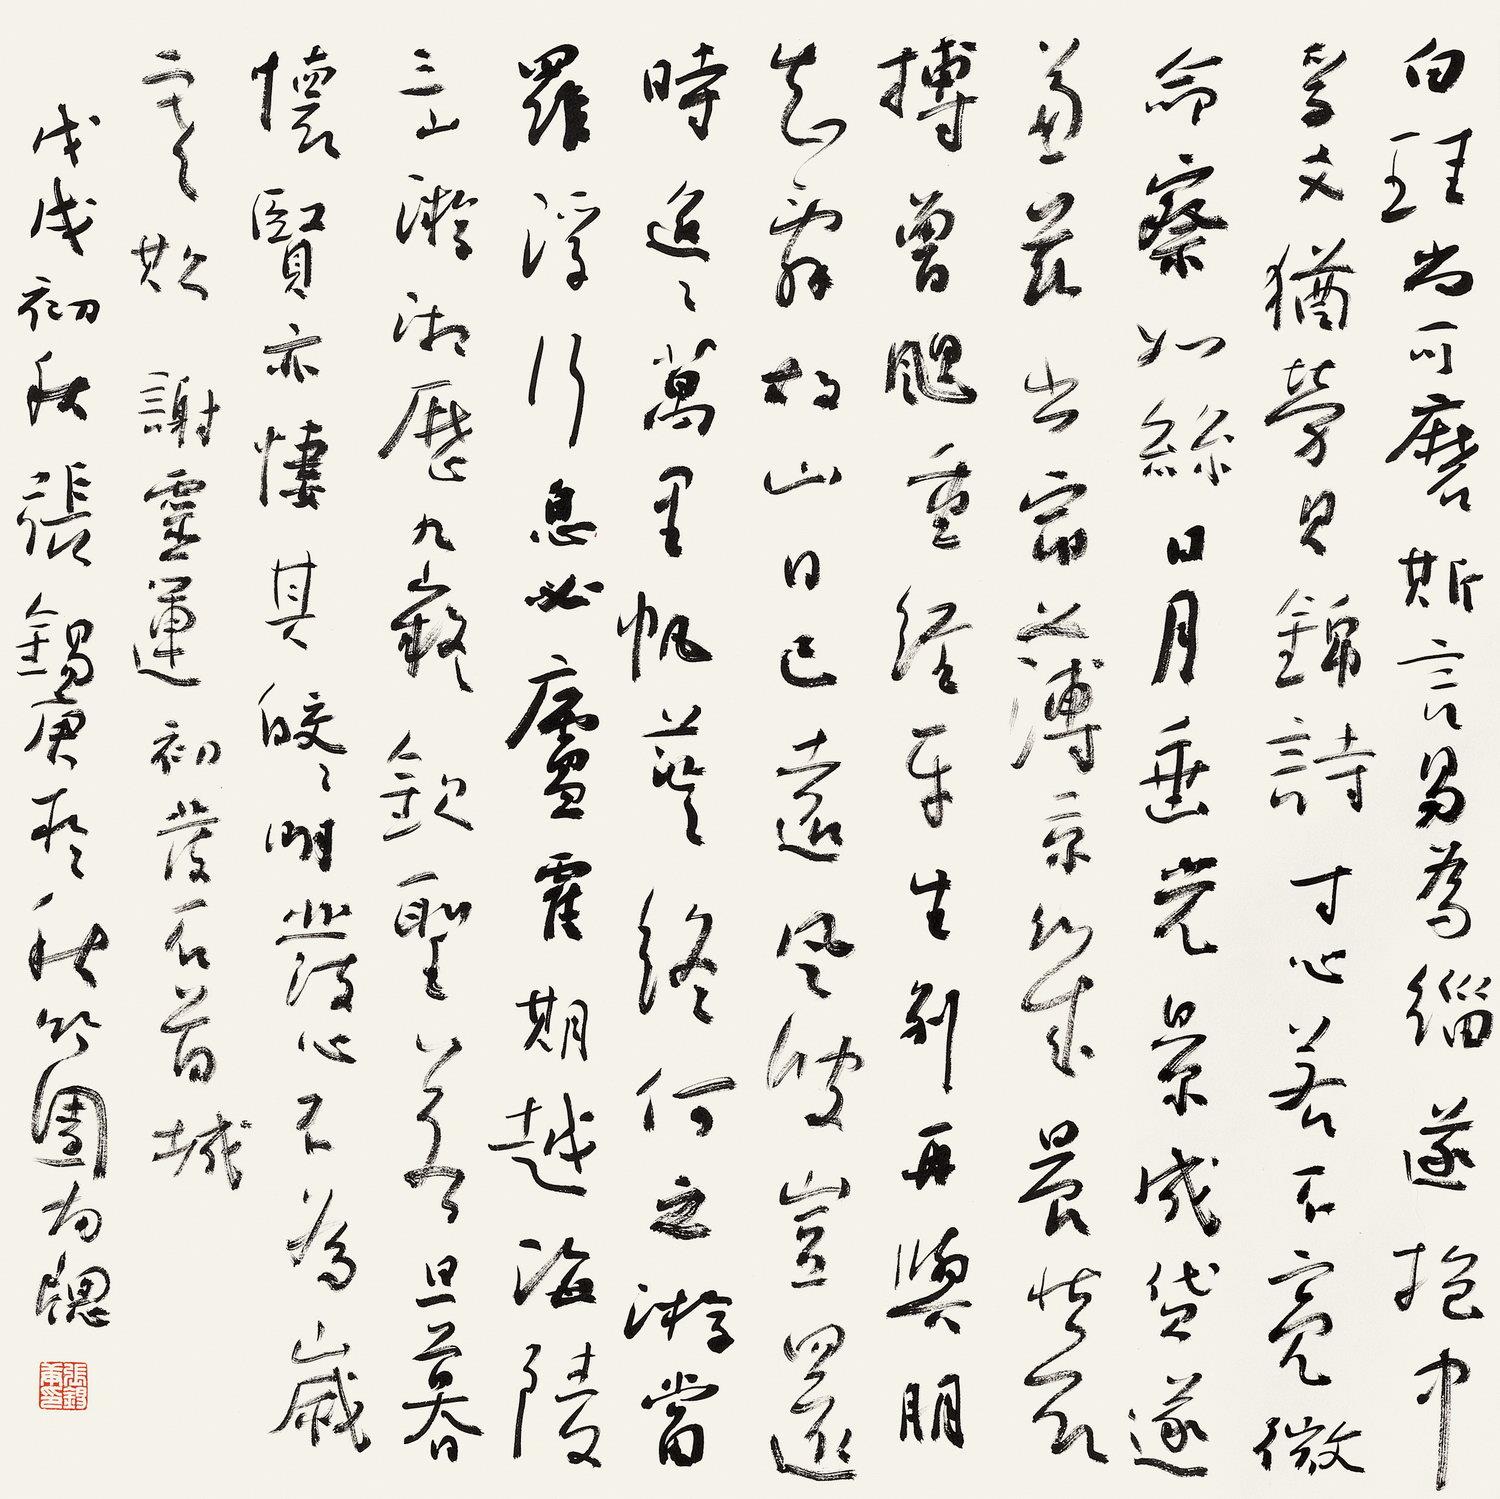 白珪尚可磨斯言易為緇遂抱中
孚爻猶勞貝錦詩寸心若不亮微
命察如絲日月垂光景成貸遂
兼茲出宿薄京畿晨裝
搏曾颸重經平生別再與朋
知辭故山日已遠風波豈還
時迢〻萬里帆茫〻終何之游當
羅浮行息必廬霍期越海陵
三山游湘歷九嶷欽聖若旦暮
懷賢亦悽其皎〻明發心不為歲
寒欺 謝靈運初發石首城
戊戌初秋張錫庚於秋竹園南牕
張錫庚印